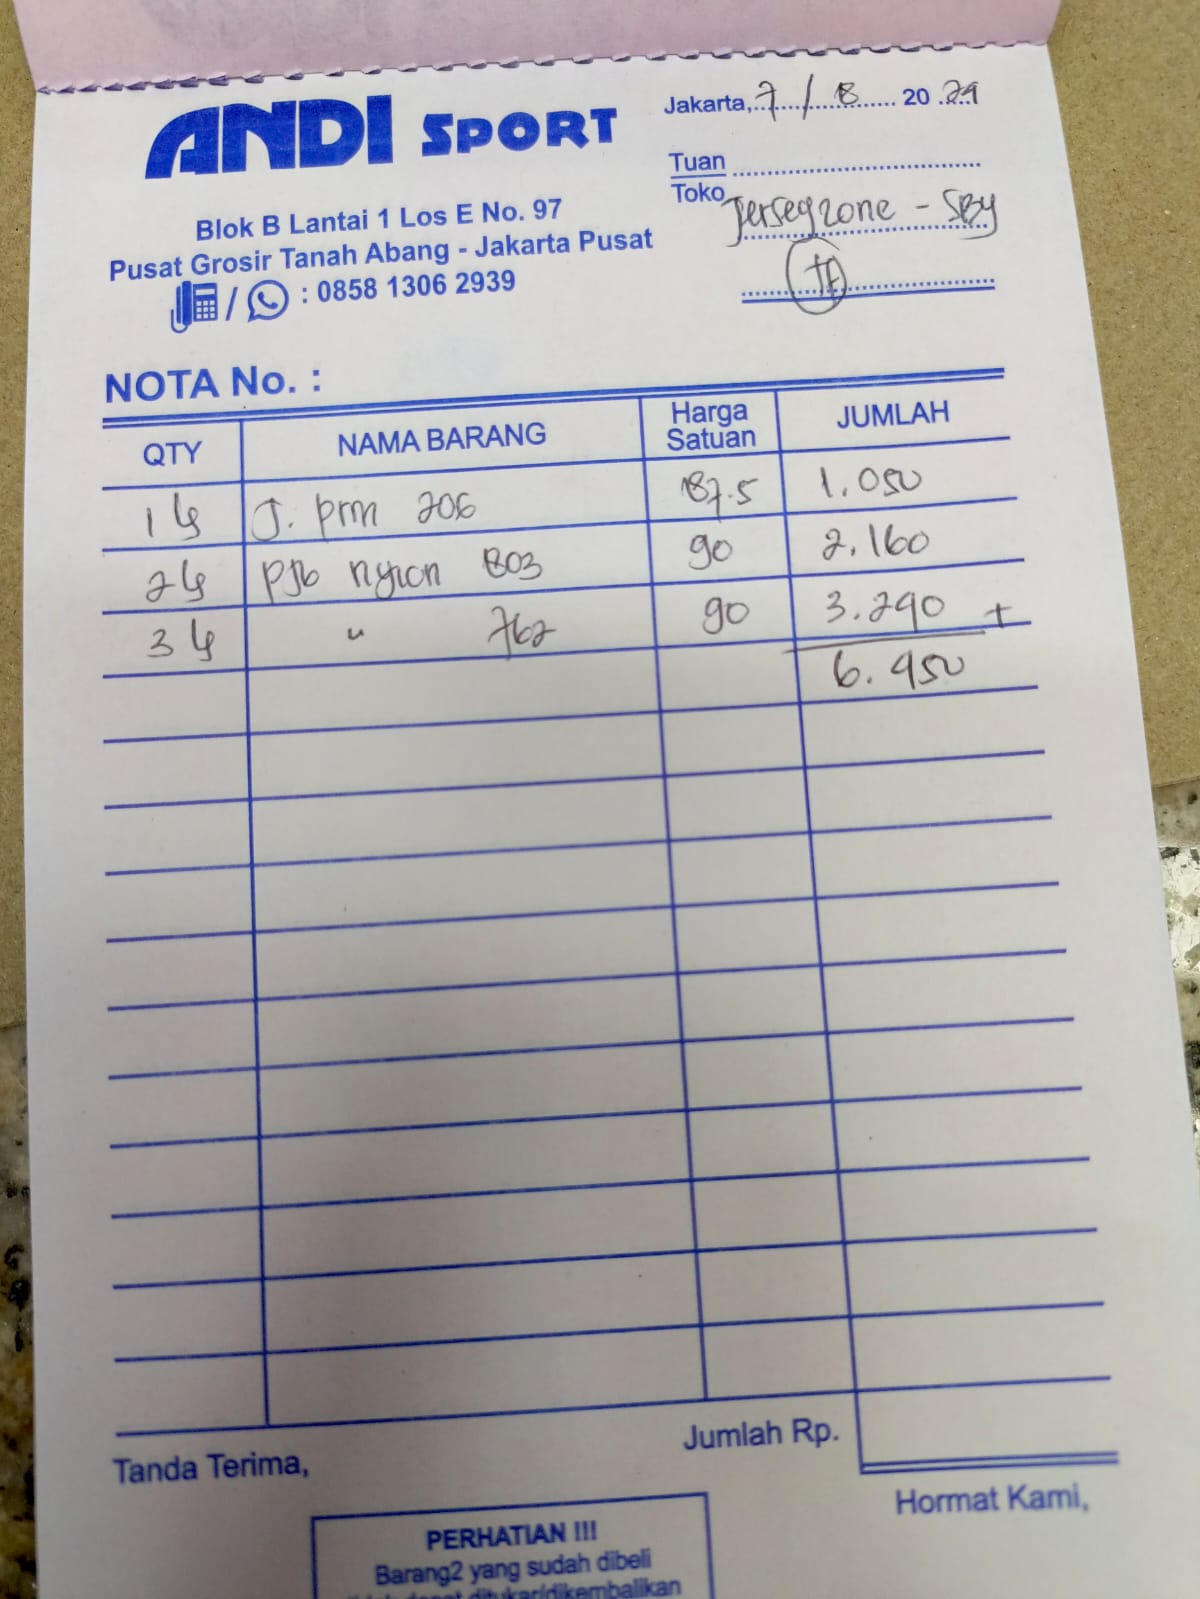 ANDI SPORT
Blok B Lantai 1 Los E No. 97
Pusat Grosir Tanah Abang - Jakarta Pusat
/ : 0858 1306 2939
Jakarta, 7 / 8 20 24
Tuan
Toko Jerseyzone - SBY
NOTA No. :
QTY NAMA BARANG Harga Satuan JUMLAH
1 J. prm 206 87.5 1.050
2 PJb nylon 803 90 2.160
3 " 762 90 3.240 +
6.450
Jumlah Rp.
Tanda Terima,
Hormat Kami,
PERHATIAN !!!
Barang2 yang sudah dibeli
ditukar/dikembalikan